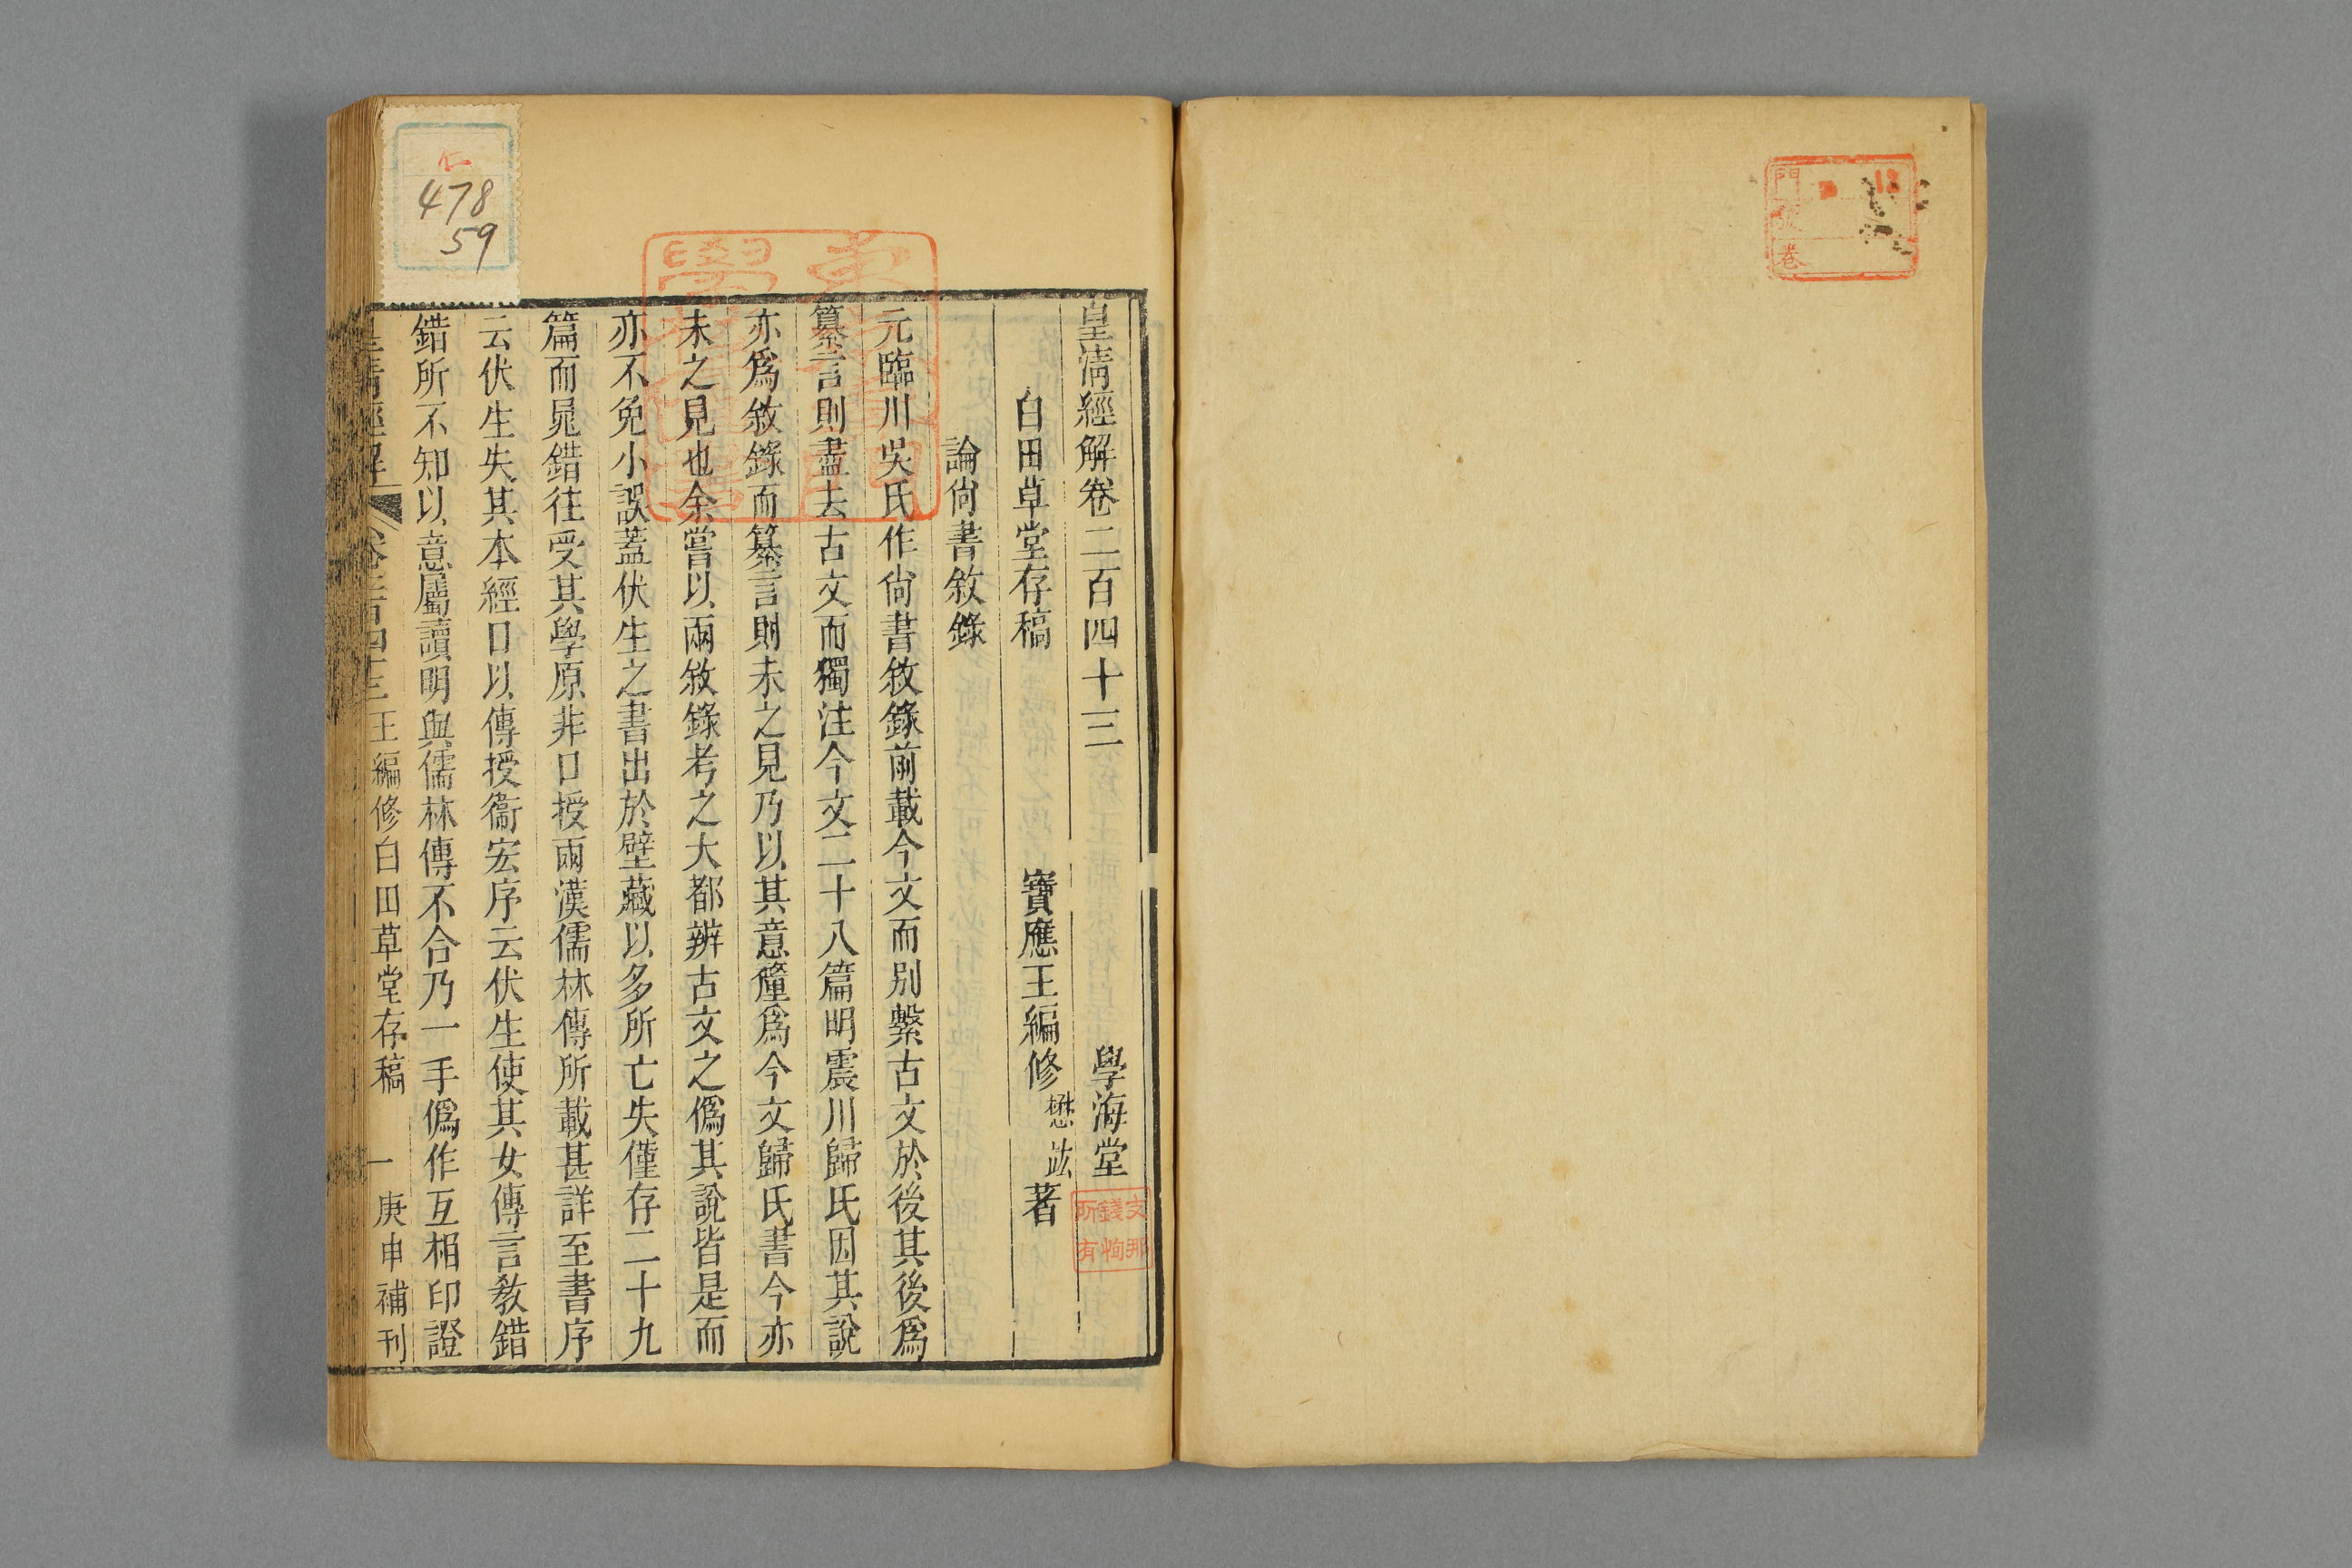 門
號
卷
皇清經解卷二百四十三
學海堂
白田草堂存稿
寶應王編修懋竑著
論尙書敘錄
元臨川吳氏作尙書敘錄前載今文而别繫古文於後其後爲
纂言則盡去古文而獨注今文二十八篇明震川歸氏因其說
亦爲敘錄而纂言則未之見乃以其意釐爲今文歸氏書今亦
未之見也余嘗以兩敘錄考之大都辨古文之僞其說皆是而
亦不免小誤蓋伏生之書出於壁藏以多所亡失僅存二十九
篇而鼂錯往受其學原非口授兩漢儒林傳所載甚詳至書序
云伏生失其本經口以傳授衞宏序云伏生使其女傳言敎錯
錯所不知以意屬讀明與儒林傳不合乃一手僞作互相印證
皇清經解
卷二百四十三
王編修白田草堂存稿
一
庚申補刊
文那
錢恂
所有
仁
478
59